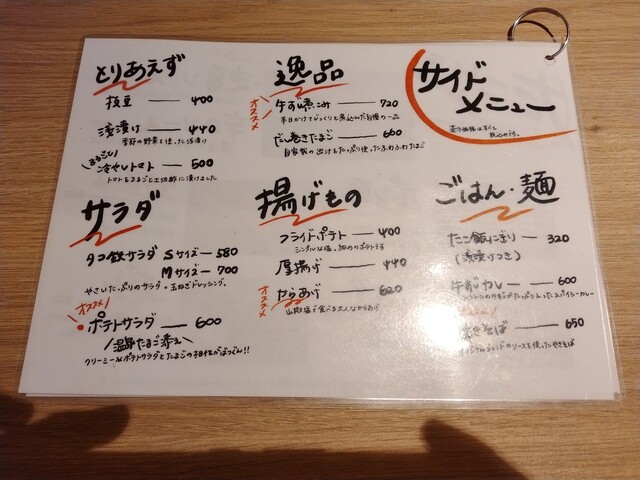 サイドメニュー
表示価格はすべて
税込みです。
とりあえず
枝豆 — 400
浅漬け — 440
季節の野菜を使った浅漬け
まるごと!
冷やしトマト — 500
トマトをまるごと土佐酢に漬けました
サラダ
タコ鉄サラダ Sサイズ — 580
Mサイズ — 700
やさいたっぷりのサラダ。玉ねぎドレッシング。
オススメ!
ポテトサラダ — 600
温野たまご添え
クリーミーなポテトサラダとたまごの相性がばつぐん!!
逸品
オススメ
牛すじ煮こみ — 720
半日かけてじっくりと煮込んだ自慢の一品
だし巻きたまご — 660
自家製の出汁をたっぷり使ったふわふわたまご
揚げもの
フライドポテト — 400
シンプルな塩。細めのポテトです
厚揚げ — 440
オススメ
からあげ — 620
山椒塩で食べる大人なからあげ
ごはん・麺
たこ飯にぎり — 320
(浅漬けつき)
牛すじカレー — 600
焼きそば — 650
オリジナルブレンドのソースを使ったやきそば